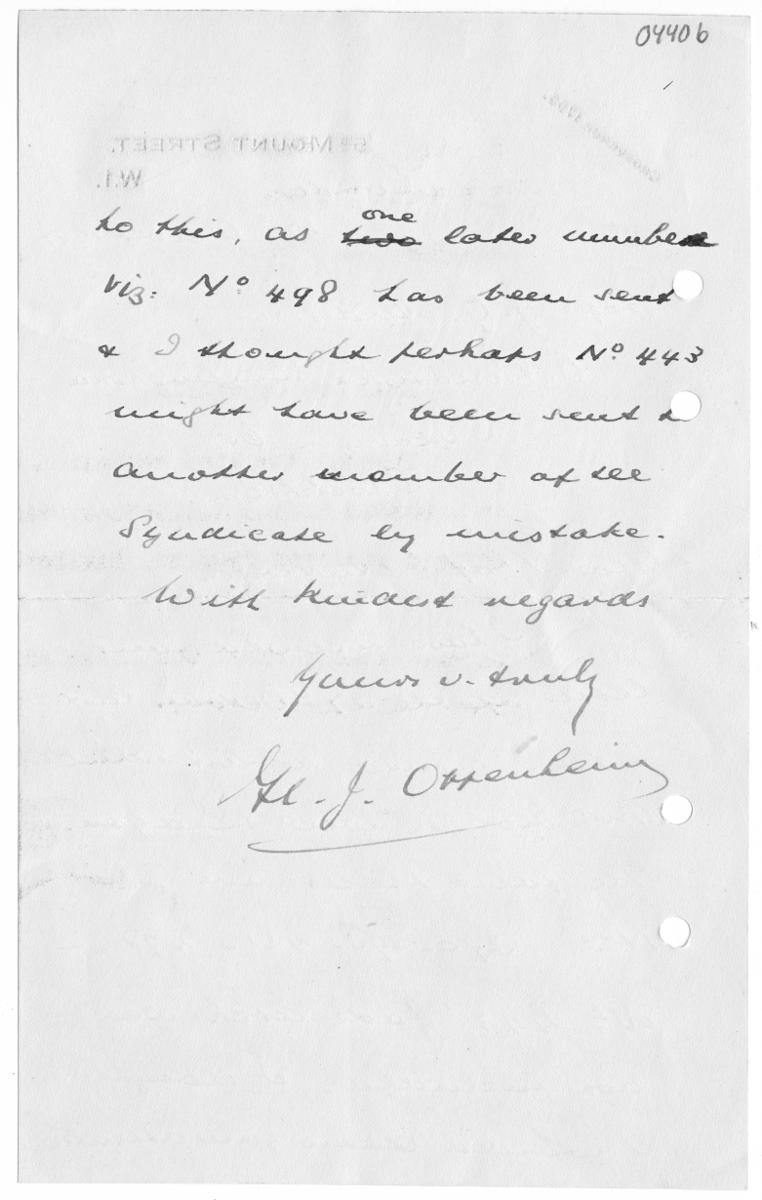 04406
5a MOUNT STREET.
W.1.
to this, as ~~two~~ one later number
viz: No 498 has been sent
& I thought perhaps No 443
might have been sent to
another member of the
Syndicate by mistake.
With kindest regards
Yours v. truly
H. J. Oppenheim